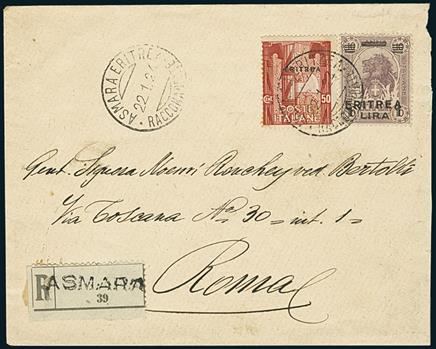 ASMARA ERITREA
22.1.2
RACCOM
ERITREA
50
POSTE
ITALIANE
ERITREA
LIRA
Gent. Signora Noemi ved Bertolli
Via Toscana No 30 = int. 1 =
Roma
R ASMARA
39